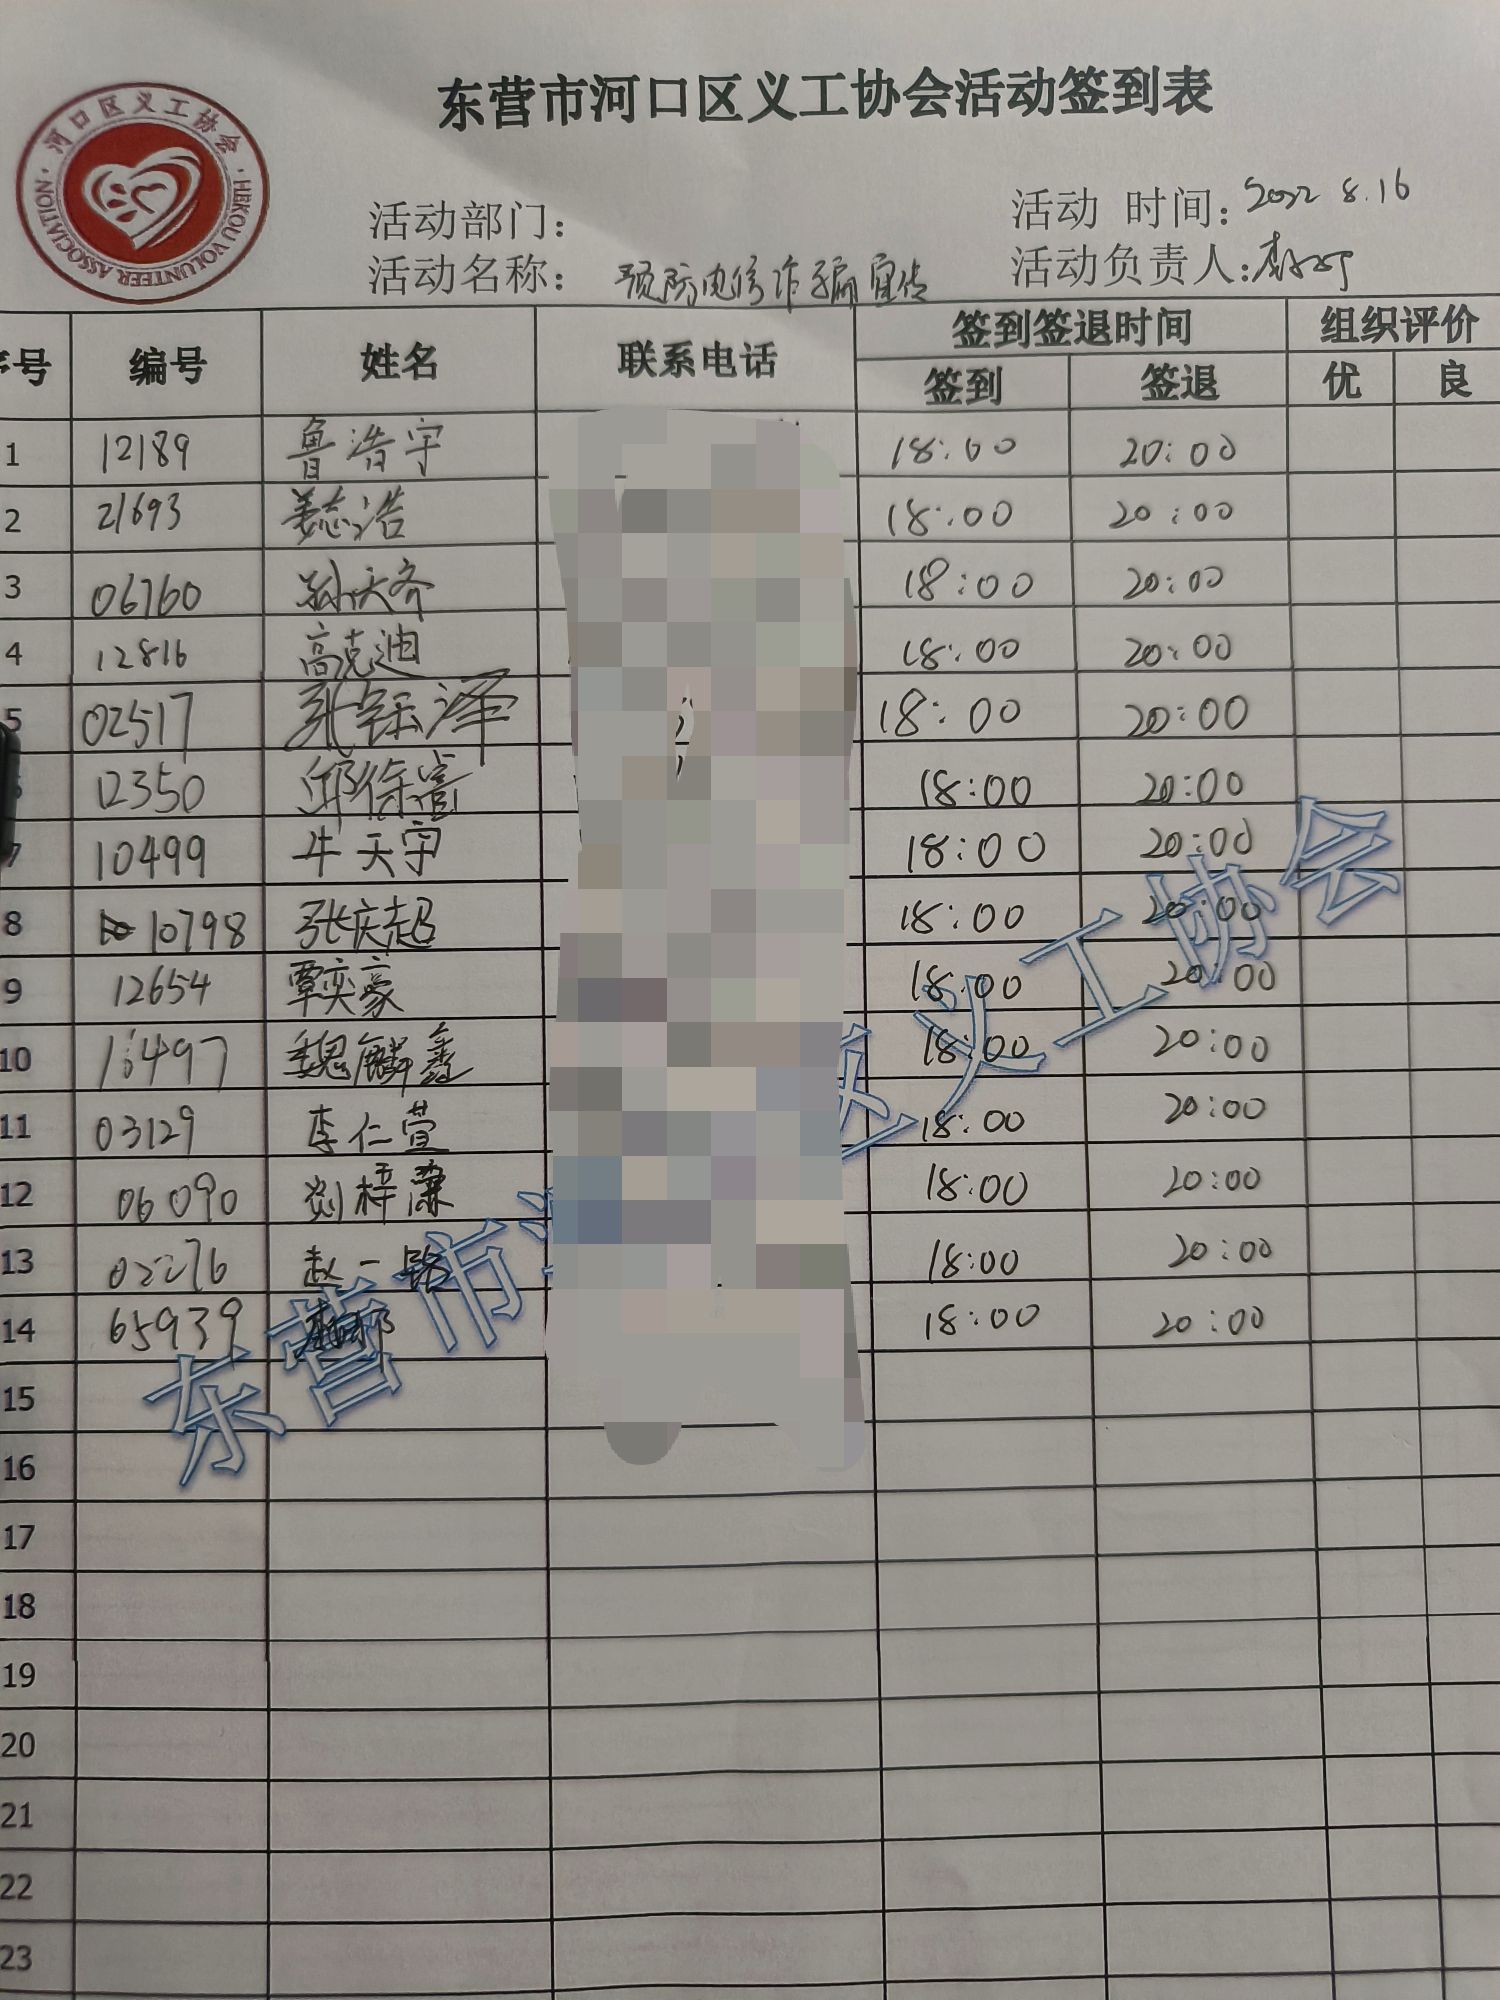 东营市河口区义工协会活动签到表
河口区义工协会
HEKOU VOLUNTEER ASSOCIATION
活动部门： 活动 时间：2022 8.16
活动名称： 预防电信诈骗宣传 活动负责人：
序号 编号 姓名 联系电话 签到签退时间 组织评价
签到 签退 优 良
1 12189 鲁浩宇 18:00 20:00
2 21693 姜志浩 18:00 20:00
3 06760 孙天齐 18:00 20:00
4 12816 高克迪 18:00 20:00
5 02517 张钰泽 18:00 20:00
12350 邱徐富 18:00 20:00
7 10499 牛天宇 18:00 20:00
8 10798 张庆超 18:00 20:00
9 12654 覃奕豪 18:00 20:00
10 魏麟鑫 18:00 20:00
11 03129 李仁萱 18:00 20:00
12 06090 刘梓濂 18:00 20:00
13 02276 赵一铭 18:00 20:00
14 65939 18:00 20:00
15
16
17
18
19
20
21
22
23
东营市 区义工协会